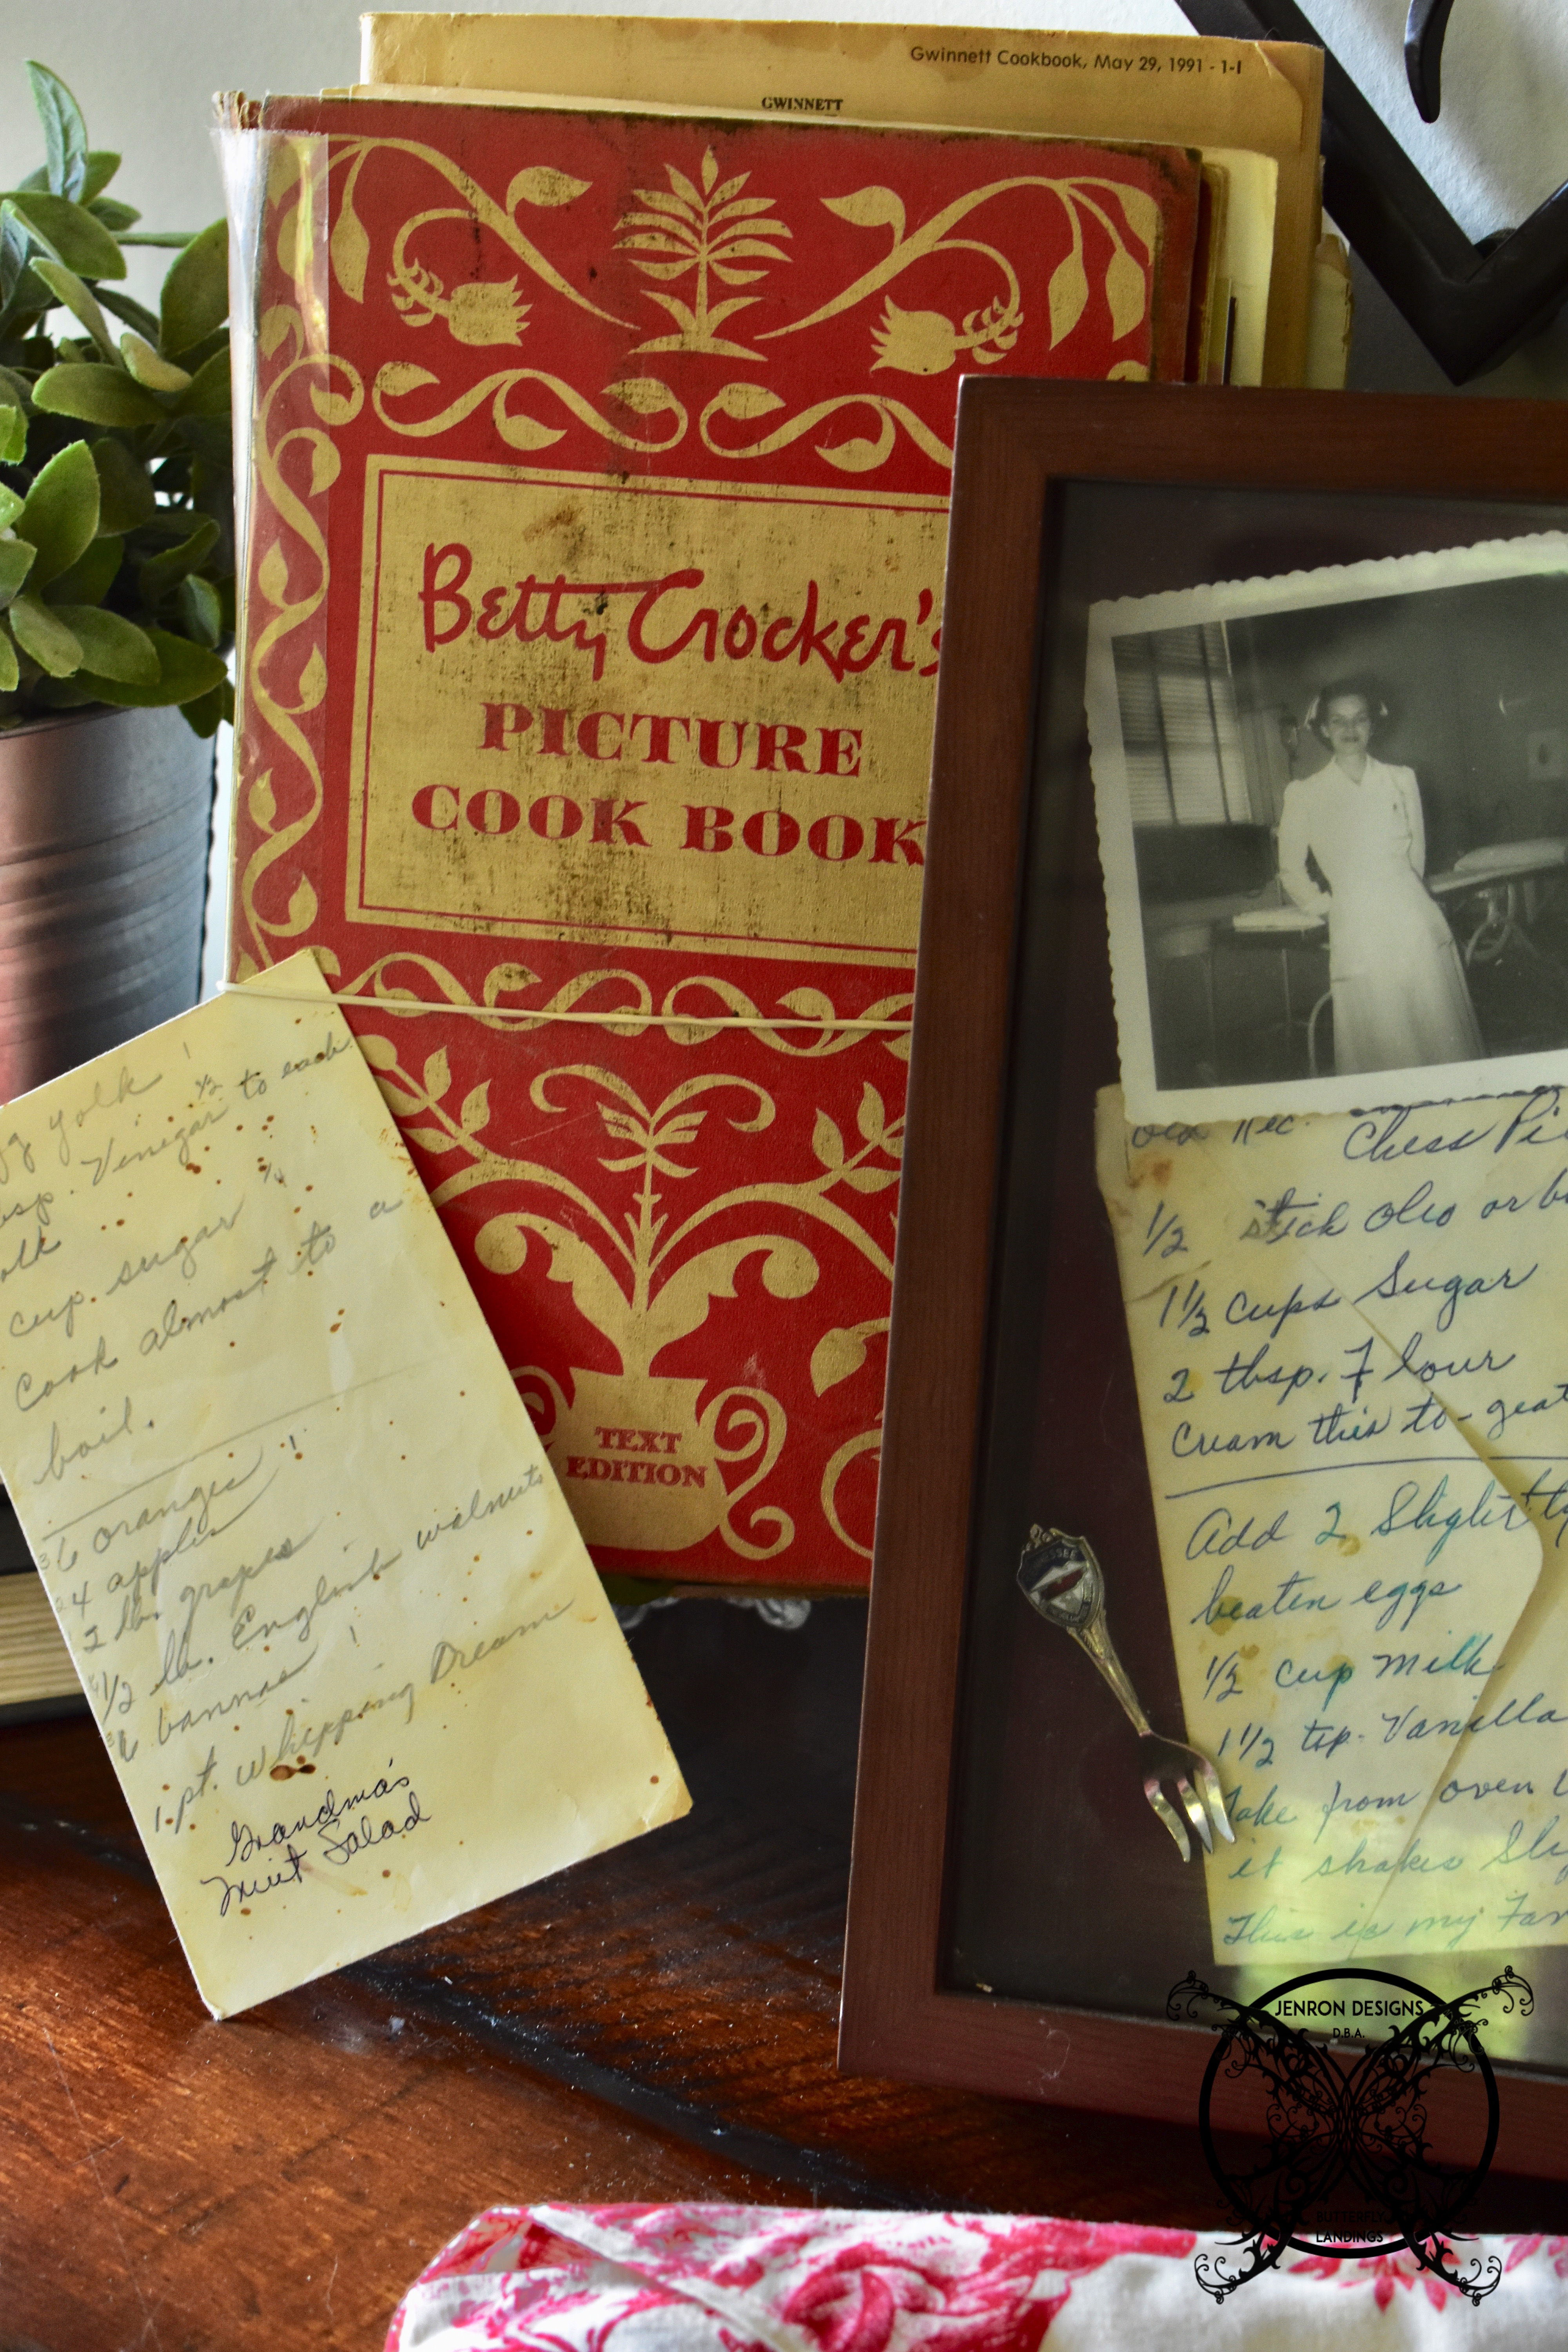 Gwinnett Cookbook, May 29, 1991 - 1-I
GWINNETT
Betty Crocker's
PICTURE
COOK BOOK
TEXT
EDITION
yolk
Vinegar 1/2 to each
cup sugar
Cook almost to a
boil.
6 oranges
4 apples
2 lbs. grapes
1/2 lb. English walnuts
6 bannas
1 pt. Whipping Cream
Grandma's
Fruit Salad
Chess Pi
1/2 stick Oleo or bu
1 1/2 cups Sugar
2 tbsp. Flour
Cream this to-geat
Add 2 Slightly
beaten eggs
1/2 cup milk
1 1/2 tsp. Vanilla
Take from oven
it shakes Sli
This is my Fav
JENRON DESIGNS
D.B.A.
BUTTERFLY
LANDINGS